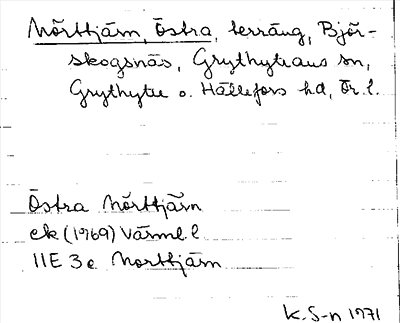 Mörttjärn, Östra, terräng, Björ-
skogsnäs, Grythyttans sn,
Grythytte o. Hällefors hd, Ör. l.
Östra Mörttjärn
ek (1969) Värml. l
11E 3c Morttjärn
K. S-n 1971